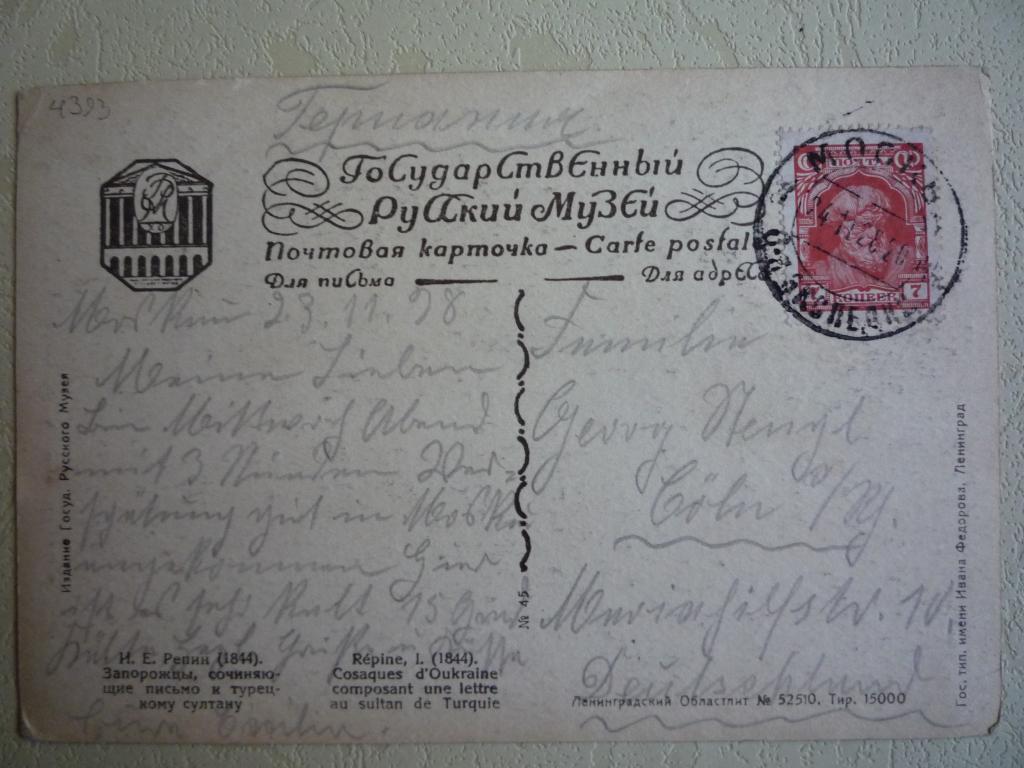 4393
Германия
Государственный
Русский Музей
Почтовая карточка — Carte postale
Для письма
Для адреса
МОСКВА
ПОЧТА
7
КОПЕЕК
Moskau 23.11.28
Meine Lieben
Bin Mittwoch Abend
mit 3 Stunden Ver-
spätung gut in Moskau
angekommen Hier
ist es sehr kalt 15 Grad
Kälte
Familie
Georg Stengl
Cöln a/Rh.
Mariahilfstr. 10
Deutschland
№ 45
Издание Госуд. Русского Музея
Н. Е. Репин (1844).
Запорожцы, сочиняю-
щие письмо к турец-
кому султану
Répine, I. (1844).
Cosaques d'Oukraine
composant une lettre
au sultan de Turquie
Ленинградский Областлит № 52510. Тир. 15000
Гос. тип. имени Ивана Федорова, Ленинград